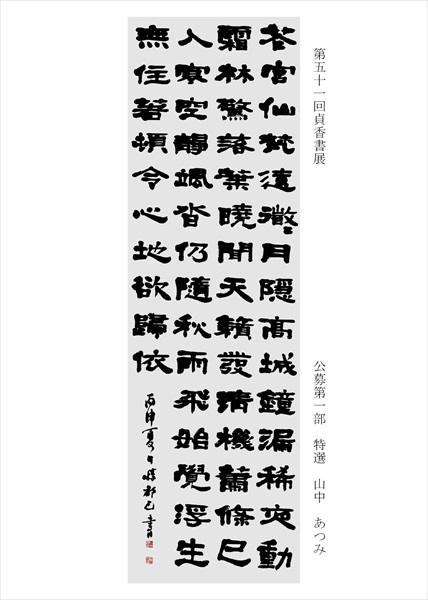 第五十一回貞香書展
公募第一部　特選　山中　あつみ
花宮仙梵遠微〻月隱高城鐘漏稀夜動
霜林驚落葉曉聞天籟發清機蕭條已
入寒空靜颯沓仍隨秋雨飛始覺浮生
無住著頓令心地欲歸依
丙申夏日 書